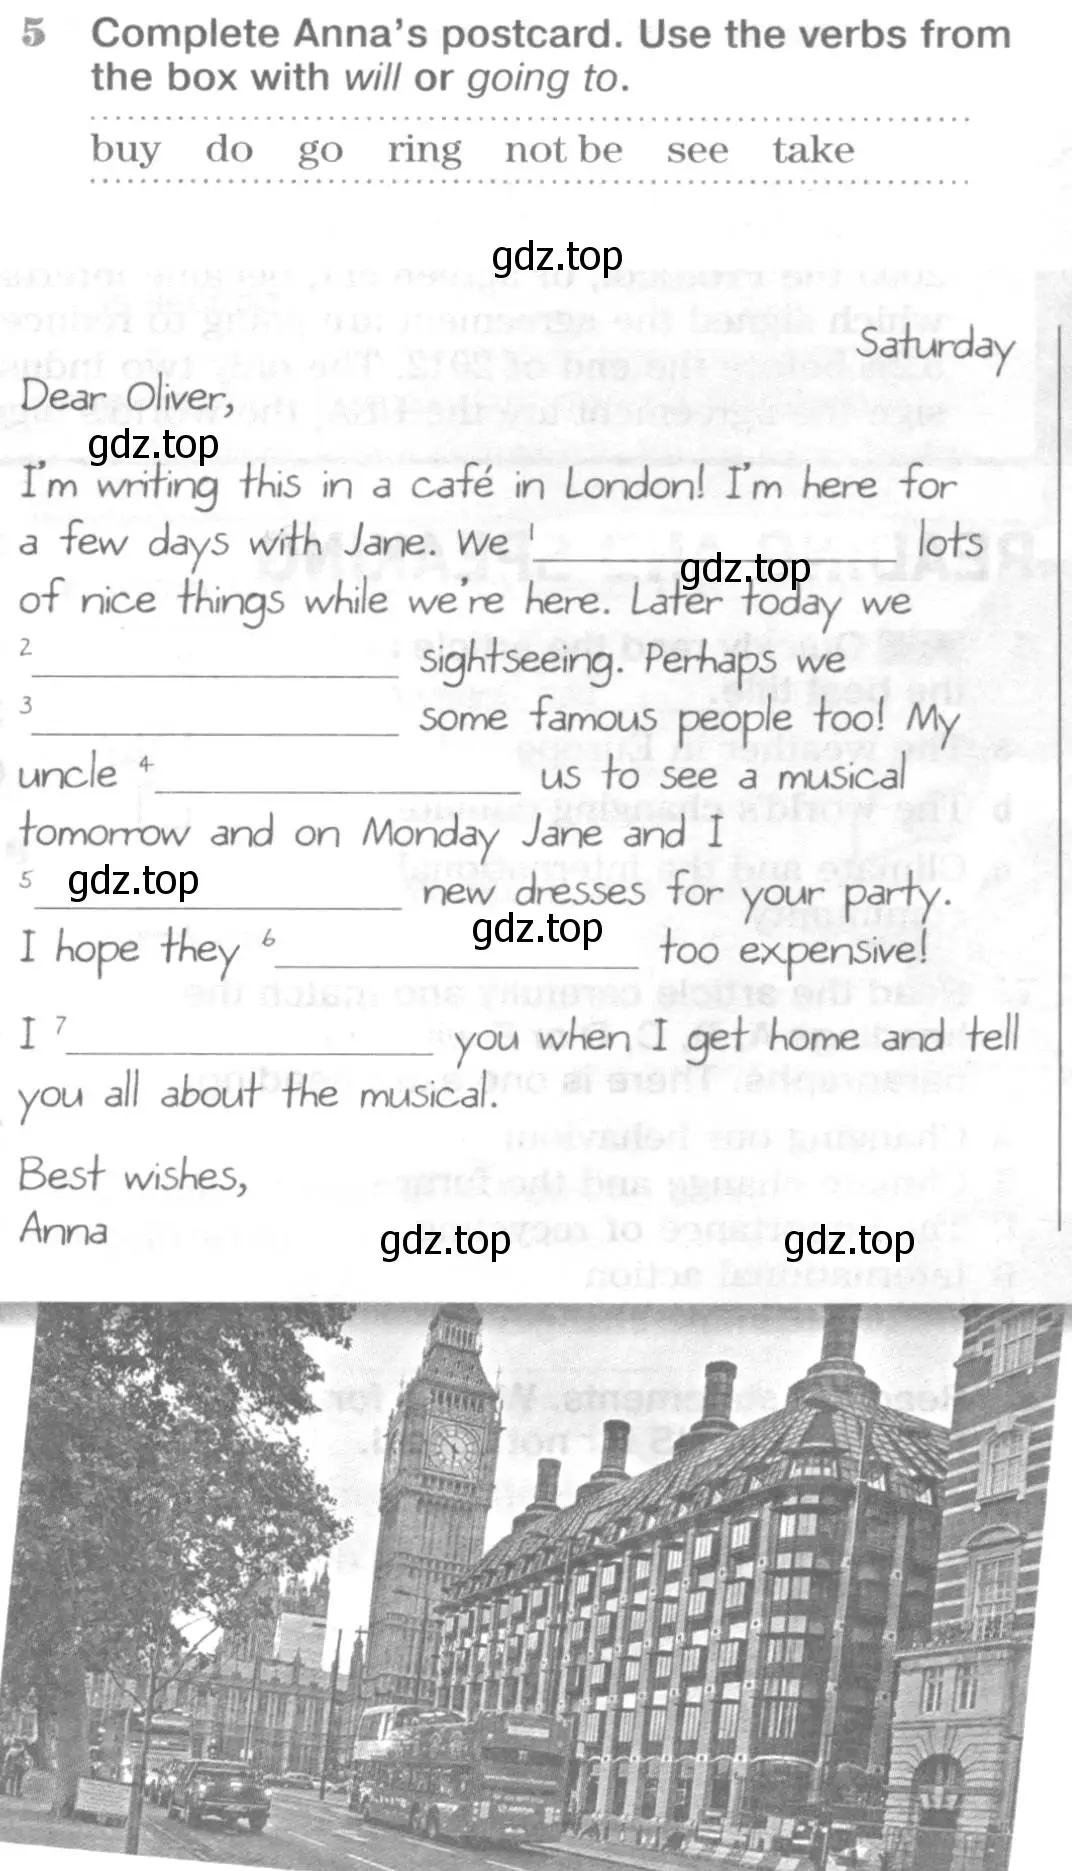 5 Complete Anna's postcard. Use the verbs from
the box with will or going to.
buy do go ring not be see take
gdz.top
Saturday
Dear Oliver,
gdz.top
I'm writing this in a café in London! I'm here for
a few days with Jane. We 1 lots
gdz.top
of nice things while we're here. Later today we
2 sightseeing. Perhaps we
3 some famous people too! My
uncle 4 us to see a musical
tomorrow and on Monday Jane and I
5 gdz.top new dresses for your party.
gdz.top
I hope they 6 too expensive!
I 7 you when I get home and tell
you all about the musical.
Best wishes,
Anna
gdz.top gdz.top